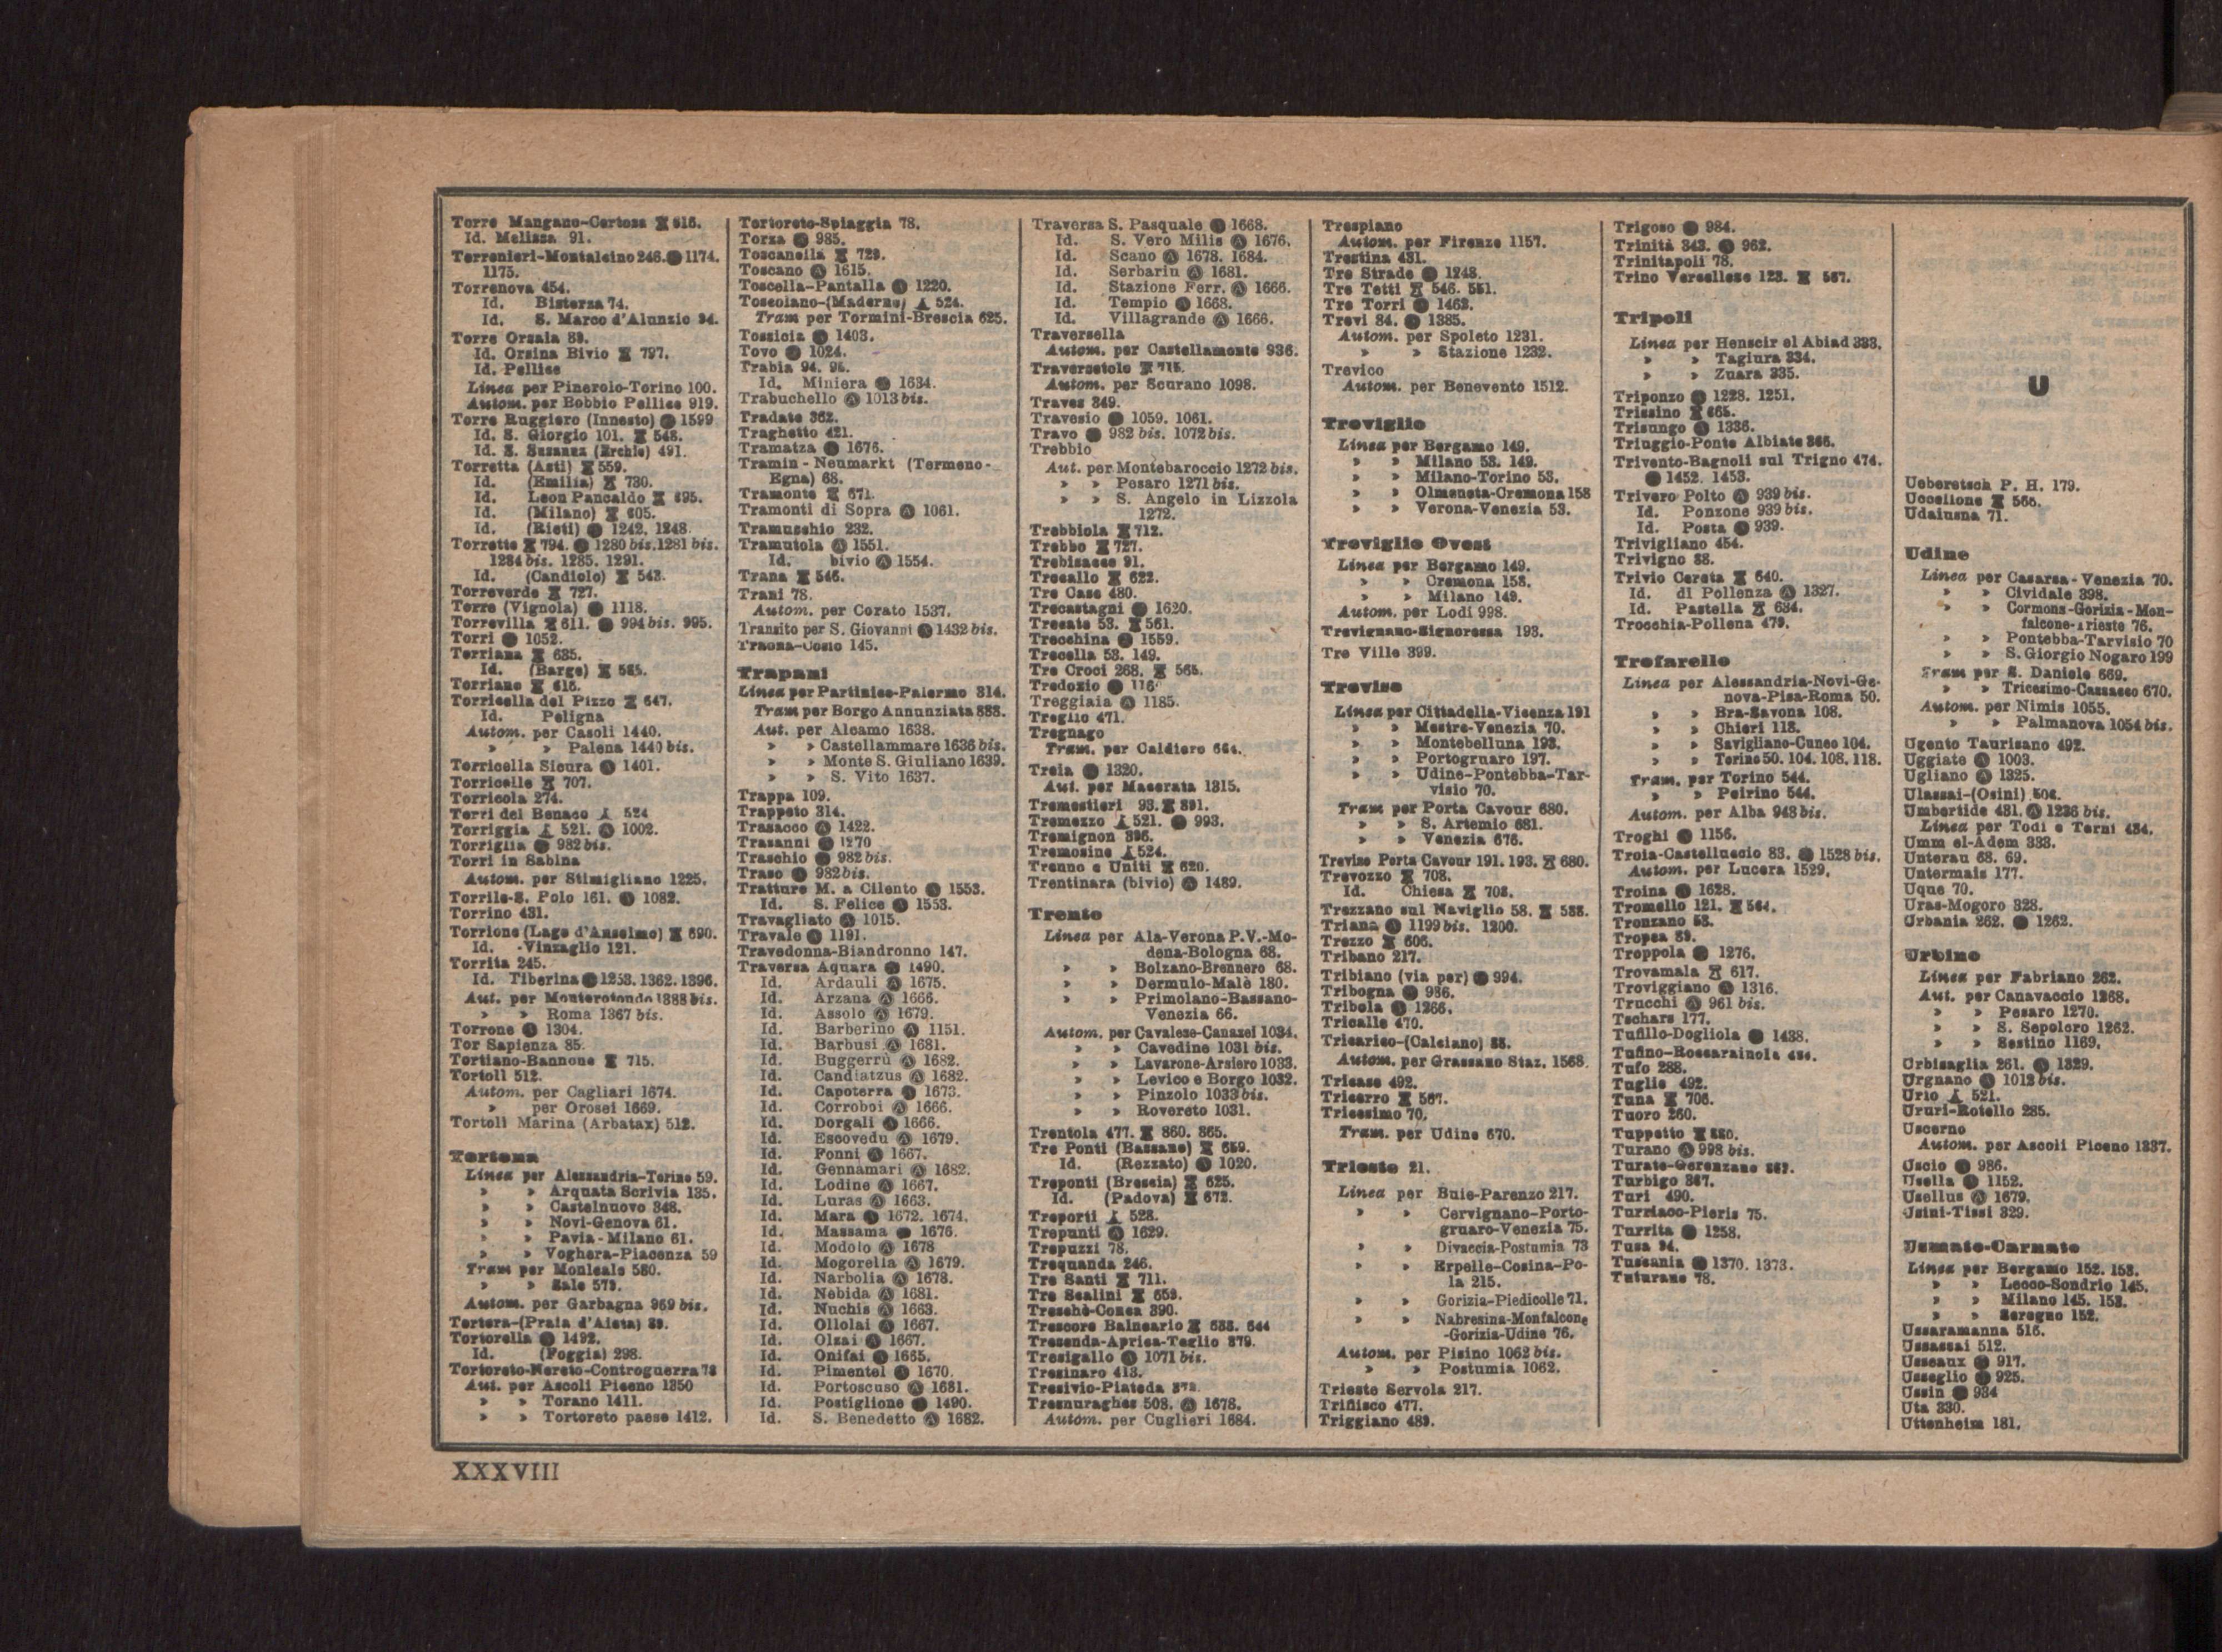 Torre Mangano-Certosa 516.
Id. Melissa 91.
Torrenieri-Montalcino 246. 1174.
1175.
Torrenova 454.
Id. Bisterza 74.
Id. S. Marco d'Alunzio 94.
Torre Orsaia 89.
Id. Orsina Bivio 797.
Id. Pellice
Linea per Pinerolo-Torino 100.
Autom. per Bobbio Pellice 919.
Torre Ruggiero (Innesto) 1599
Id. S. Giorgio 101. 548.
Id. S. Susanna (Erchie) 491.
Torretta (Asti) 559.
Id. (Emilia) 730.
Id. Leon Pancaldo 695.
Id. (Milano) 605.
Id. (Rieti) 1242. 1248.
Torrette 794. 1280 bis. 1281 bis.
1284 bis. 1285. 1291.
Id. (Candiolo) 543.
Torreverde 727.
Torre (Vignola) 1118.
Torrevilla 611. 994 bis. 995.
Torri 1052.
Torriana 635.
Id. (Barge) 565.
Torriano 616.
Torricella del Pizzo 647.
Id. Peligna
Autom. per Casoli 1440.
» » Palena 1440 bis.
Torricella Sicura Ⓐ 1401.
Torricelle 707.
Torricola 274.
Torri del Benaco 524
Torriggia 521. Ⓐ 1002.
Torriglia 982 bis.
Torri in Sabina
Autom. per Stimigliano 1225.
Torrile-S. Polo 161. 1082.
Torrino 431.
Torrione (Lago d'Anselmo) 690.
Id. -Vinzaglio 121.
Torrita 245.
Id. Tiberina 1253. 1362. 1396.
Aut. per Monterotondo 1388 bis.
» » Roma 1367 bis.
Torrone 1304.
Tor Sapienza 85.
Tortiano-Bannone 715.
Tortoli 512.
Autom. per Cagliari 1674.
» per Orosei 1669.
Tortoli Marina (Arbatax) 512.
Tortona
Linea per Alessandria-Torino 59.
» » Arquata Scrivia 135.
» » Castelnuovo 348.
» » Novi-Genova 61.
» » Pavia-Milano 61.
» » Voghera-Piacenza 59
Tram per Monleale 580.
» » Sale 579.
Autom. per Garbagna 969 bis.
Tortora-(Praia d'Aieta) 89.
Tortorella 1492.
Id. (Foggia) 298.
Tortoreto-Nereto-Controguerra 78
Aut. per Ascoli Piceno 1350
» » Torano 1411.
» » Tortoreto paese 1412.
Tortoreto-Spiaggia 78.
Torza 985.
Toscanella 729.
Toscano Ⓐ 1615.
Toscella-Pantalla 1220.
Toscolano-(Maderno) 524.
Tram per Tormini-Brescia 625.
Tossicia 1403.
Tovo 1024.
Trabia 94. 95.
Id. Miniera 1634.
Trabuchello Ⓐ 1013 bis.
Tradate 362.
Traghetto 421.
Tramatza 1676.
Tramin - Neumarkt (Termeno-
Egna) 68.
Tramonte 671.
Tramonti di Sopra Ⓐ 1061.
Tramuschio 232.
Tramutola Ⓐ 1551.
Id. bivio Ⓐ 1554.
Trana 546.
Trani 78.
Autom. per Corato 1537.
Transito per S. Giovanni 1432 bis.
Traona-Cosio 145.
Trapani
Linea per Partinico-Palermo 314.
Tram per Borgo Annunziata 888.
Aut. per Alcamo 1638.
» » Castellammare 1636 bis.
» » Monte S. Giuliano 1639.
» » S. Vito 1637.
Trappa 109.
Trappeto 314.
Trasacco Ⓐ 1422.
Trasanni 1270
Traschio 982 bis.
Traso 982 bis.
Tratture M. a Cilento 1553.
Id. S. Felice Ⓐ 1553.
Travagliato Ⓐ 1015.
Travale Ⓐ 1191.
Travedonna-Biandronno 147.
Traversa Aquara 1490.
Id. Ardauli Ⓐ 1675.
Id. Arzana Ⓐ 1666.
Id. Assolo Ⓐ 1679.
Id. Barberino Ⓐ 1151.
Id. Barbusi Ⓐ 1681.
Id. Buggerrù Ⓐ 1682.
Id. Candiatzus Ⓐ 1682.
Id. Capoterra 1673.
Id. Corroboi Ⓐ 1666.
Id. Dorgali 1666.
Id. Escovedu Ⓐ 1679.
Id. Fonni Ⓐ 1667.
Id. Gennamari Ⓐ 1682.
Id. Lodine Ⓐ 1667.
Id. Luras Ⓐ 1663.
Id. Mara 1672. 1674.
Id. Massama 1676.
Id. Modolo Ⓐ 1678
Id. Mogorella Ⓐ 1679.
Id. Narbolia Ⓐ 1678.
Id. Nebida Ⓐ 1681.
Id. Nuchis Ⓐ 1663.
Id. Ollolai Ⓐ 1667.
Id. Olzai 1667.
Id. Onifai 1665.
Id. Pimentel 1670.
Id. Portoscuso Ⓐ 1681.
Id. Postiglione 1490.
Id. S. Benedetto Ⓐ 1682.
Traversa S. Pasquale 1668.
Id. S. Vero Milis Ⓐ 1676.
Id. Scano Ⓐ 1678. 1684.
Id. Serbariu Ⓐ 1681.
Id. Stazione Ferr. Ⓐ 1666.
Id. Tempio 1668.
Id. Villagrande Ⓐ 1666.
Traversella
Autom. per Castellamonte 936.
Traversetolo 715.
Autom. per Scurano 1098.
Traves 349.
Travesio 1059. 1061.
Travo 982 bis. 1072 bis.
Trebbio
Aut. per Montebaroccio 1272 bis.
» » Pesaro 1271 bis.
» » S. Angelo in Lizzola
1272.
Trebbiola 712.
Trebbo 727.
Trebisacce 91.
Trecallo 622.
Tre Case 480.
Trecastagni 1620.
Trecate 53. 561.
Trecchina 1559.
Trecella 53. 149.
Tre Croci 268. 565.
Tredozio
Treggiaia Ⓐ 1185.
Treglio 471.
Tregnago
Tram. per Caldiero 664.
Treia 1320.
Aut. per Macerata 1315.
Tremestieri 93. 891.
Tremezzo 521. 993.
Tremignon 396.
Tremosine 524.
Trenno e Uniti 620.
Trentinara (bivio) Ⓐ 1489.
Trento
Linea per Ala-Verona P.V.-Mo-
dena-Bologna 68.
» » Bolzano-Brennero 68.
» » Dermulo-Malè 180.
» » Primolano-Bassano-
Venezia 66.
Autom. per Cavalese-Canazei 1034.
» » Cavedine 1031 bis.
» » Lavarone-Arsiero 1033.
» » Levico e Borgo 1032.
» » Pinzolo 1033 bis.
» » Rovereto 1031.
Trentola 477. 860. 865.
Tre Ponti (Bassano) 659.
Id. (Rezzato) 1020.
Treponti (Brescia) 625.
Id. (Padova) 672.
Treporti 523.
Trepunti Ⓐ 1629.
Trepuzzi 78.
Trequanda 246.
Tre Santi 711.
Tre Scalini 659.
Treschè-Conca 390.
Trescore Balneario 638. 644
Tresenda-Aprica-Teglio 379.
Tresigallo 1071 bis.
Tresinaro 413.
Tresivio-Piateda 379.
Tresnuraghes 508. Ⓐ 1678.
Autom. per Cuglieri 1684.
Trespiano
Autom. per Firenze 1157.
Trestina 431.
Tre Strade 1248.
Tre Tetti 546. 551.
Tre Torri 1463.
Trevi 84. 1385.
Autom. per Spoleto 1231.
» » Stazione 1232.
Trevico
Autom. per Benevento 1512.
Treviglio
Linea per Bergamo 149.
» » Milano 53. 149.
» » Milano-Torino 53.
» » Olmeneta-Cremona 158
» » Verona-Venezia 53.
Treviglio Ovest
Linea per Bergamo 149.
» » Cremona 158.
» » Milano 149.
Autom. per Lodi 998.
Trevignano-Signoressa 193.
Tre Ville 399.
Treviso
Linea per Cittadella-Vicenza 191
» » Mestre-Venezia 70.
» » Montebelluna 193.
» » Portogruaro 197.
» » Udine-Pontebba-Tar-
visio 70.
Tram per Porta Cavour 680.
» » S. Artemio 681.
» » Venezia 676.
Treviso Porta Cavour 191. 193. 680.
Trevozzo 708.
Id. Chiesa 708.
Trezzano sul Naviglio 58. 588.
Triana Ⓐ 1199 bis. 1200.
Trezzo 606.
Tribano 217.
Tribiano (via per) 994.
Tribogna 986.
Tribola 1266.
Tricalle 470.
Tricarico-(Calciano) 88.
Autom. per Grassano Staz. 1568.
Tricase 492.
Tricerro 567.
Tricesimo 70.
Tram. per Udine 670.
Trieste 21.
Linea per Buie-Parenzo 217.
» » Cervignano-Porto-
gruaro-Venezia 75.
» » Divaccia-Postumia 73
» » Erpelle-Cosina-Po-
la 215.
» » Gorizia-Piedicolle 71.
» » Nabresina-Monfalcone
-Gorizia-Udine 76.
Autom. per Pisino 1062 bis.
» » Postumia 1062.
Trieste Servola 217.
Triflisco 477.
Triggiano 489.
Trigoso 984.
Trinità 343. 962.
Trinitapoli 78.
Trino Vercellese 123. 567.
Tripoli
Linea per Henscir el Abiad 333.
» » Tagiura 334.
» » Zuara 335.
Triponzo 1228. 1251.
Trissino 665.
Trisungo 1336.
Triuggio-Ponte Albiate 366.
Trivento-Bagnoli sul Trigno 474.
1452. 1453.
Trivero Polto Ⓐ 939 bis.
Id. Ponzone 939 bis.
Id. Posta 939.
Trivigliano 454.
Trivigno 88.
Trivio Cereta 640.
Id. di Pollenza Ⓐ 1327.
Id. Pastella 634.
Trocchia-Pollena 479.
Trofarello
Linea per Alessandria-Novi-Ge-
nova-Pisa-Roma 50.
» » Bra-Savona 108.
» » Chieri 118.
» » Savigliano-Cuneo 104.
» » Torino 50. 104. 108. 118.
Tram. per Torino 544.
» » Poirino 544.
Autom. per Alba 948 bis.
Troghi 1156.
Troia-Castelluccio 83. 1528 bis.
Autom. per Lucera 1529.
Troina 1628.
Tromello 121. 564.
Tronzano 53.
Tropea 89.
Troppola 1276.
Trovamala 617.
Troviggiano Ⓐ 1316.
Trucchi Ⓐ 961 bis.
Tschars 177.
Tufillo-Dogliola 1438.
Tufino-Roccarainola 484.
Tufo 288.
Tuglie 492.
Tuna 706.
Tuoro 260.
Tuppetto 880.
Turano Ⓐ 998 bis.
Turate-Gerenzano 362.
Turbigo 367.
Turi 490.
Turriaco-Pieris 75.
Turrita 1258.
Tusa 94.
Tuscania 1370. 1373.
Tuturano 78.
U
Ueberetsch P. H. 179.
Uccellione 565.
Udaiusna 71.
Udine
Linea per Casarsa-Venezia 70.
» » Cividale 398.
» » Cormons-Gorizia-Mon-
falcone-Trieste 76.
» » Pontebba-Tarvisio 70
» » S. Giorgio Nogaro 199
Tram per S. Daniele 669.
» » Tricesimo-Cassacco 670.
Autom. per Nimis 1055.
» » Palmanova 1054 bis.
Ugento Taurisano 492.
Uggiate Ⓐ 1003.
Ugliano Ⓐ 1325.
Ulassai-(Osini) 506.
Umbertide 431. Ⓐ 1236 bis.
Linea per Todi e Terni 434.
Umm el-Adem 333.
Unterau 68. 69.
Untermais 177.
Uque 70.
Uras-Mogoro 328.
Urbania 262. 1262.
Urbino
Linea per Fabriano 262.
Aut. per Canavaccio 1268.
» » Pesaro 1270.
» » S. Sepolcro 1262.
» » Sestino 1169.
Urbisaglia 261. 1329.
Urgnano Ⓐ 1012 bis.
Urio 521.
Ururi-Rotello 285.
Uscerno
Autom. per Ascoli Piceno 1337.
Uscio 986.
Usella 1152.
Usellus Ⓐ 1679.
Usini-Tissi 329.
Usmate-Carnate
Linea per Bergamo 152. 153.
» » Lecco-Sondrio 145.
» » Milano 145. 153.
» » Seregno 152.
Ussaramanna 516.
Ussassai 512.
Usseaux 917.
Usseglio 925.
Ussin 934
Uta 330.
Uttenheim 181.
XXXVIII